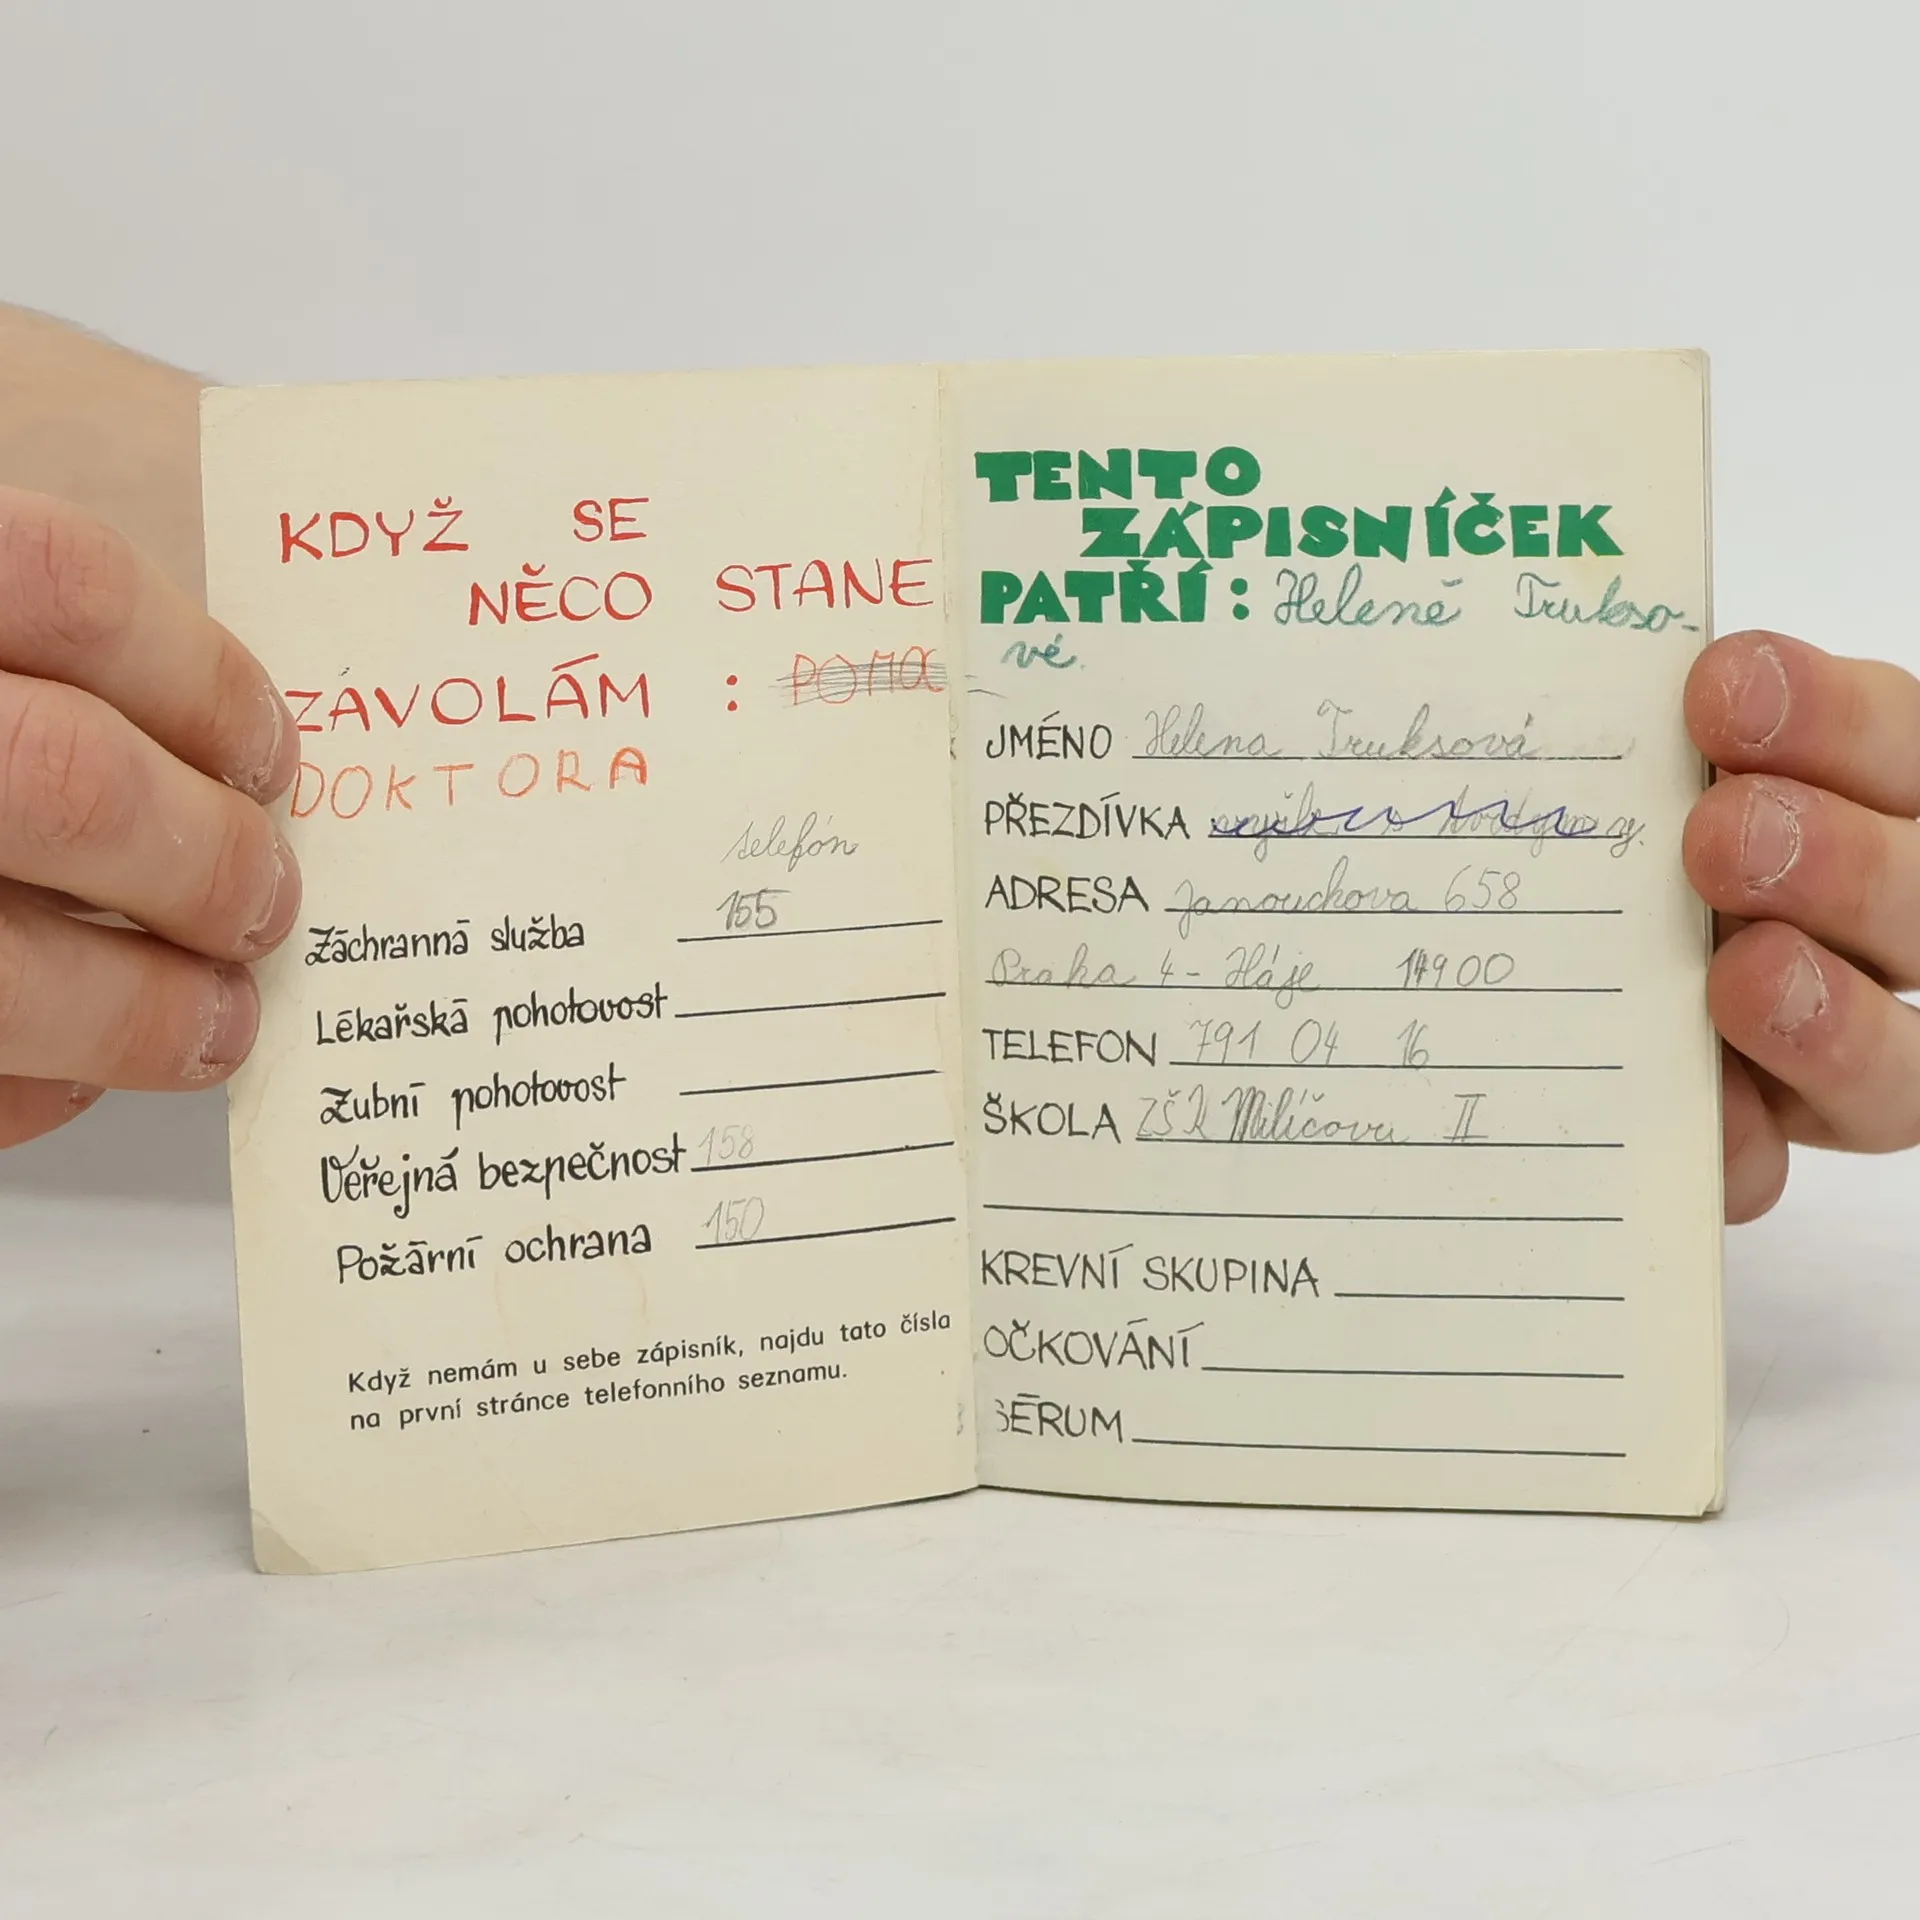 KDYŽ SE
NĚCO STANE
ZÁVOLÁM :
DOKTORA
telefón
Záchranná služba 155
Lékařská pohotovost
Zubní pohotovost
Veřejná bezpečnost 158
Požární ochrana 150
Když nemám u sebe zápisník, najdu tato čísla
na první stránce telefonního seznamu.
TENTO
ZÁPISNÍČEK
PATŘÍ : Heleně Trukso-
vé.
JMÉNO Helena Truksová
PŘEZDÍVKA
ADRESA Janouchova 658
Praha 4 - Háje 14900
TELEFON 791 04 16
ŠKOLA ZŠ Milíčova II
KREVNÍ SKUPINA
OČKOVÁNÍ
SÉRUM